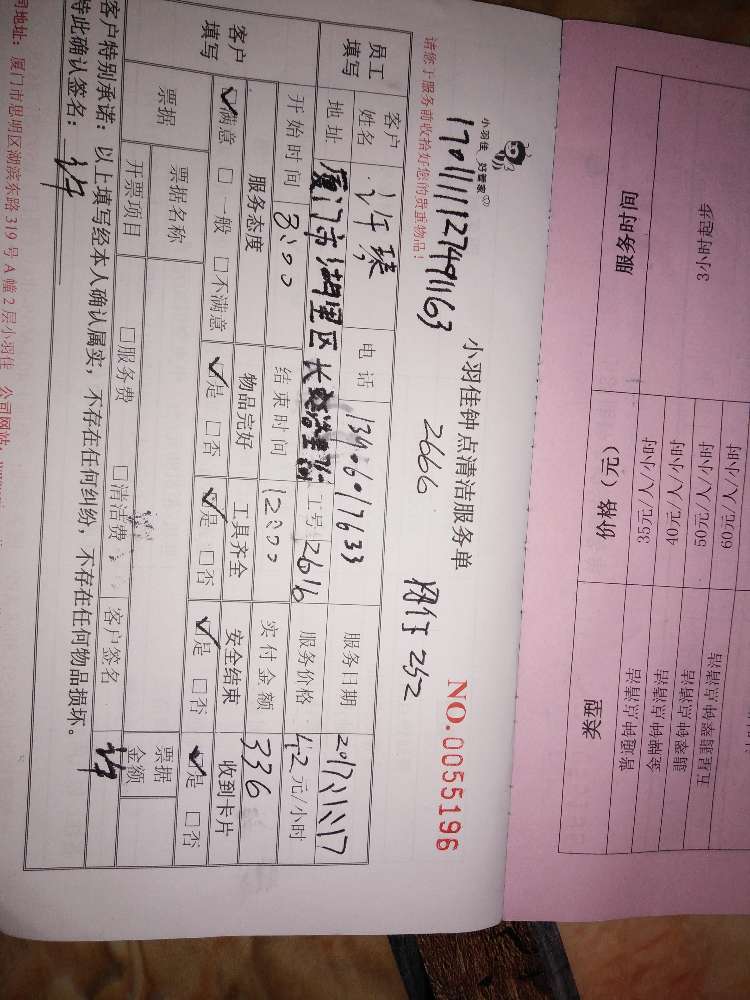 服务时间 价格（元） 类型
3小时起步 35元/人/小时 普通钟点清洁
40元/人/小时 金牌钟点清洁
50元/人/小时 翡翠钟点清洁
60元/人/小时 五星翡翠钟点清洁
小羽佳 好管家
小羽佳钟点清洁服务单 NO.0055196
1701111127491163 2666 252
请您于服务前收拾好您的贵重物品！
员工填写 客户姓名 许琴 电话 13906017633 服务日期 2017.11.17
地址 厦门市湖里区长 工号 2616 服务价格 42元/小时
开始时间 8:00 结束时间 12:00 实付金额 336
客户填写 服务态度 物品完好 工具齐全 安全结束 收到卡片
☑满意 □一般 □不满意 ☑是 □否 ☑是 □否 ☑是 □否 ☑是 □否
票据 票据名称 □服务费 □清洁费 客户签名 票据金额
开票项目
客户特别承诺：以上填写经本人确认属实，不存在任何纠纷，不存在任何物品损坏。
特此确认签名：
司地址：厦门市思明区湖滨东路319号A幢2层小羽佳 公司网站：www